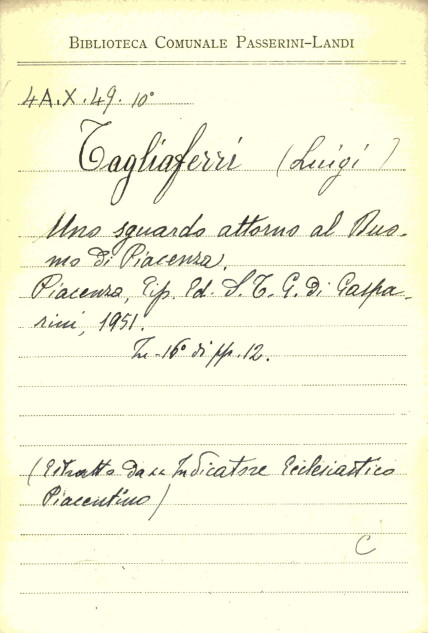 BIBLIOTECA COMUNALE PASSERINI-LANDI
4A.X.49.10°
Tagliaferri (Luigi)
Uno sguardo attorno al Duo-
mo di Piacenza.
Piacenza, Tip. Ed. S.T.G. di Gaspa-
rini, 1951.
In-16° di pp. 12.
(Estratto da "Indicatore Ecclesiastico
Piacentino)
C